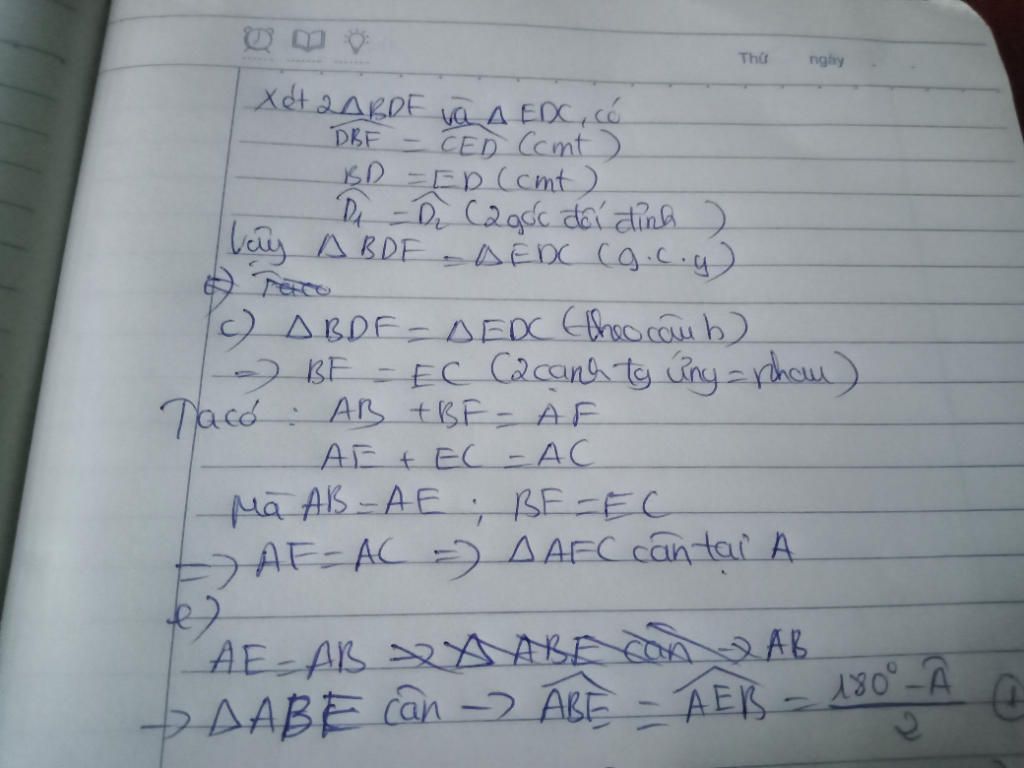 Thứ ngày
Xét 2 △BDF và △EDC, có
\widehat{DBF} = \widehat{CED} (cmt)
BD = ED (cmt)
\widehat{D_1} = \widehat{D_2} (2 góc đối đỉnh)
Vậy △BDF = △EDC (g.c.g)
c) △BDF = △EDC (theo câu b)
=> BF = EC (2 cạnh tg ứng = nhau)
Ta có : AB + BF = AF
AE + EC = AC
Mà AB = AE ; BF = EC
=> AF = AC => △AFC cân tại A
e)
AE = AB => △ ABE cân -> AB
-> △ABE cân -> \widehat{ABE} = \widehat{AEB} = \frac{180° - \widehat{A}}{2} (1